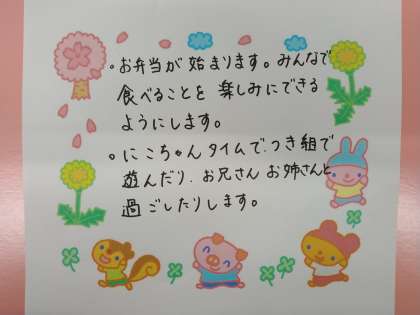 ・お弁当が始まります。みんなで
食べることを楽しみにできる
ようにします。
・にこちゃんタイムで、つき組で
遊んだり、お兄さんお姉さんと
過ごしたりします。